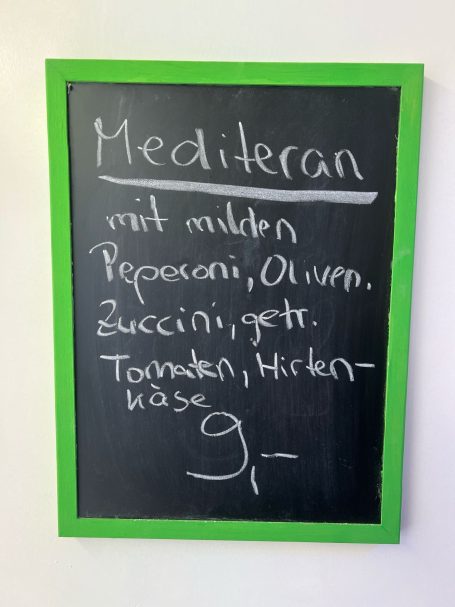 Mediteran
mit milden
Peperoni, Oliven.
Zuccini, getr.
Tomaten, Hirten-
käse
9,-